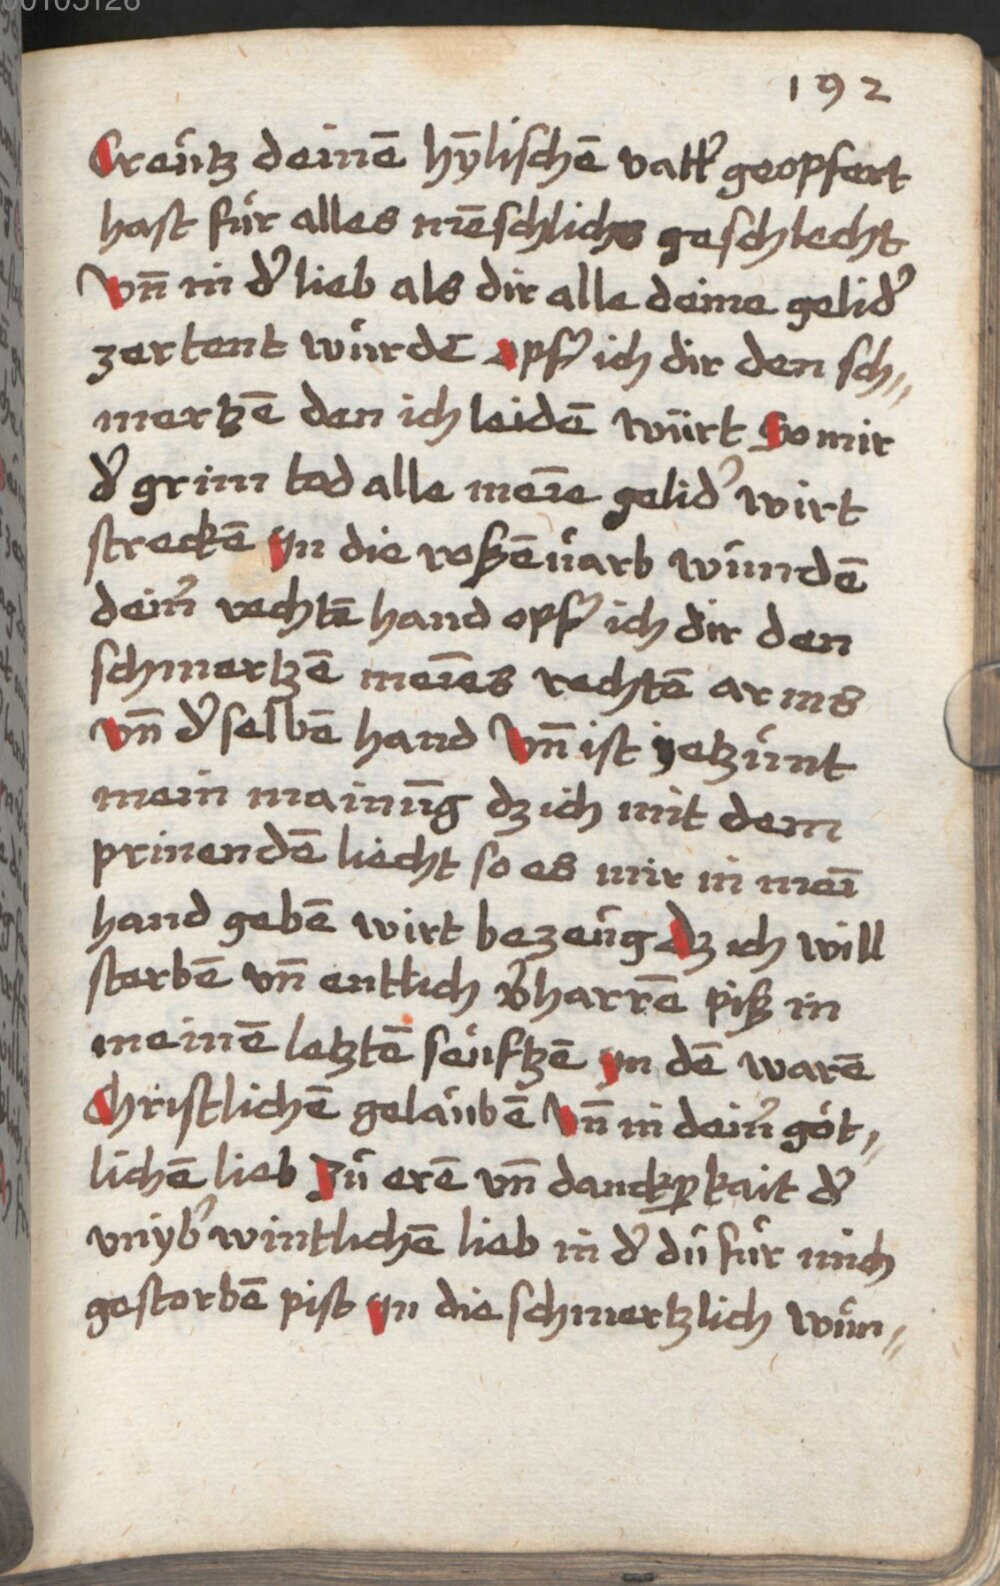 00105126
192
Creütz deinē hȳlischē vatt̉ geopfert
hast für alles mēschlichs geschlecht
Vn̄ in d̉ lieb als dir alle deine gelid̉
zertent würdē opf̉ ich dir den sch„
mertzē den ich leidē würt So mir
d̉ grim tod alle meīe gelid̉ wirt
streckē In die roßēuarb wundē
dein̉ rechtē hand opf̉ ich dir den
schmertzē meīes rechtē arms
vn̄ d̉ selbē hand Vn̄ ist yetzünt
mein mainūg dz ich mit dem
prinendē liecht so es mir in meī
hand gebē wirt bezeüg dz ich will
sterbē vn̄ entlich v̉harrē piß in
meinē letztē seüftzē In dē warē
Christlichē gelaübē Vn̄ in dein̉ göt„
lichē lieb Zü erē vn̄ danckꝑkait d̉
vnyb̉wintlichē lieb in d̉ dü für mich
gestorbē pist In die schmertzlich wün„